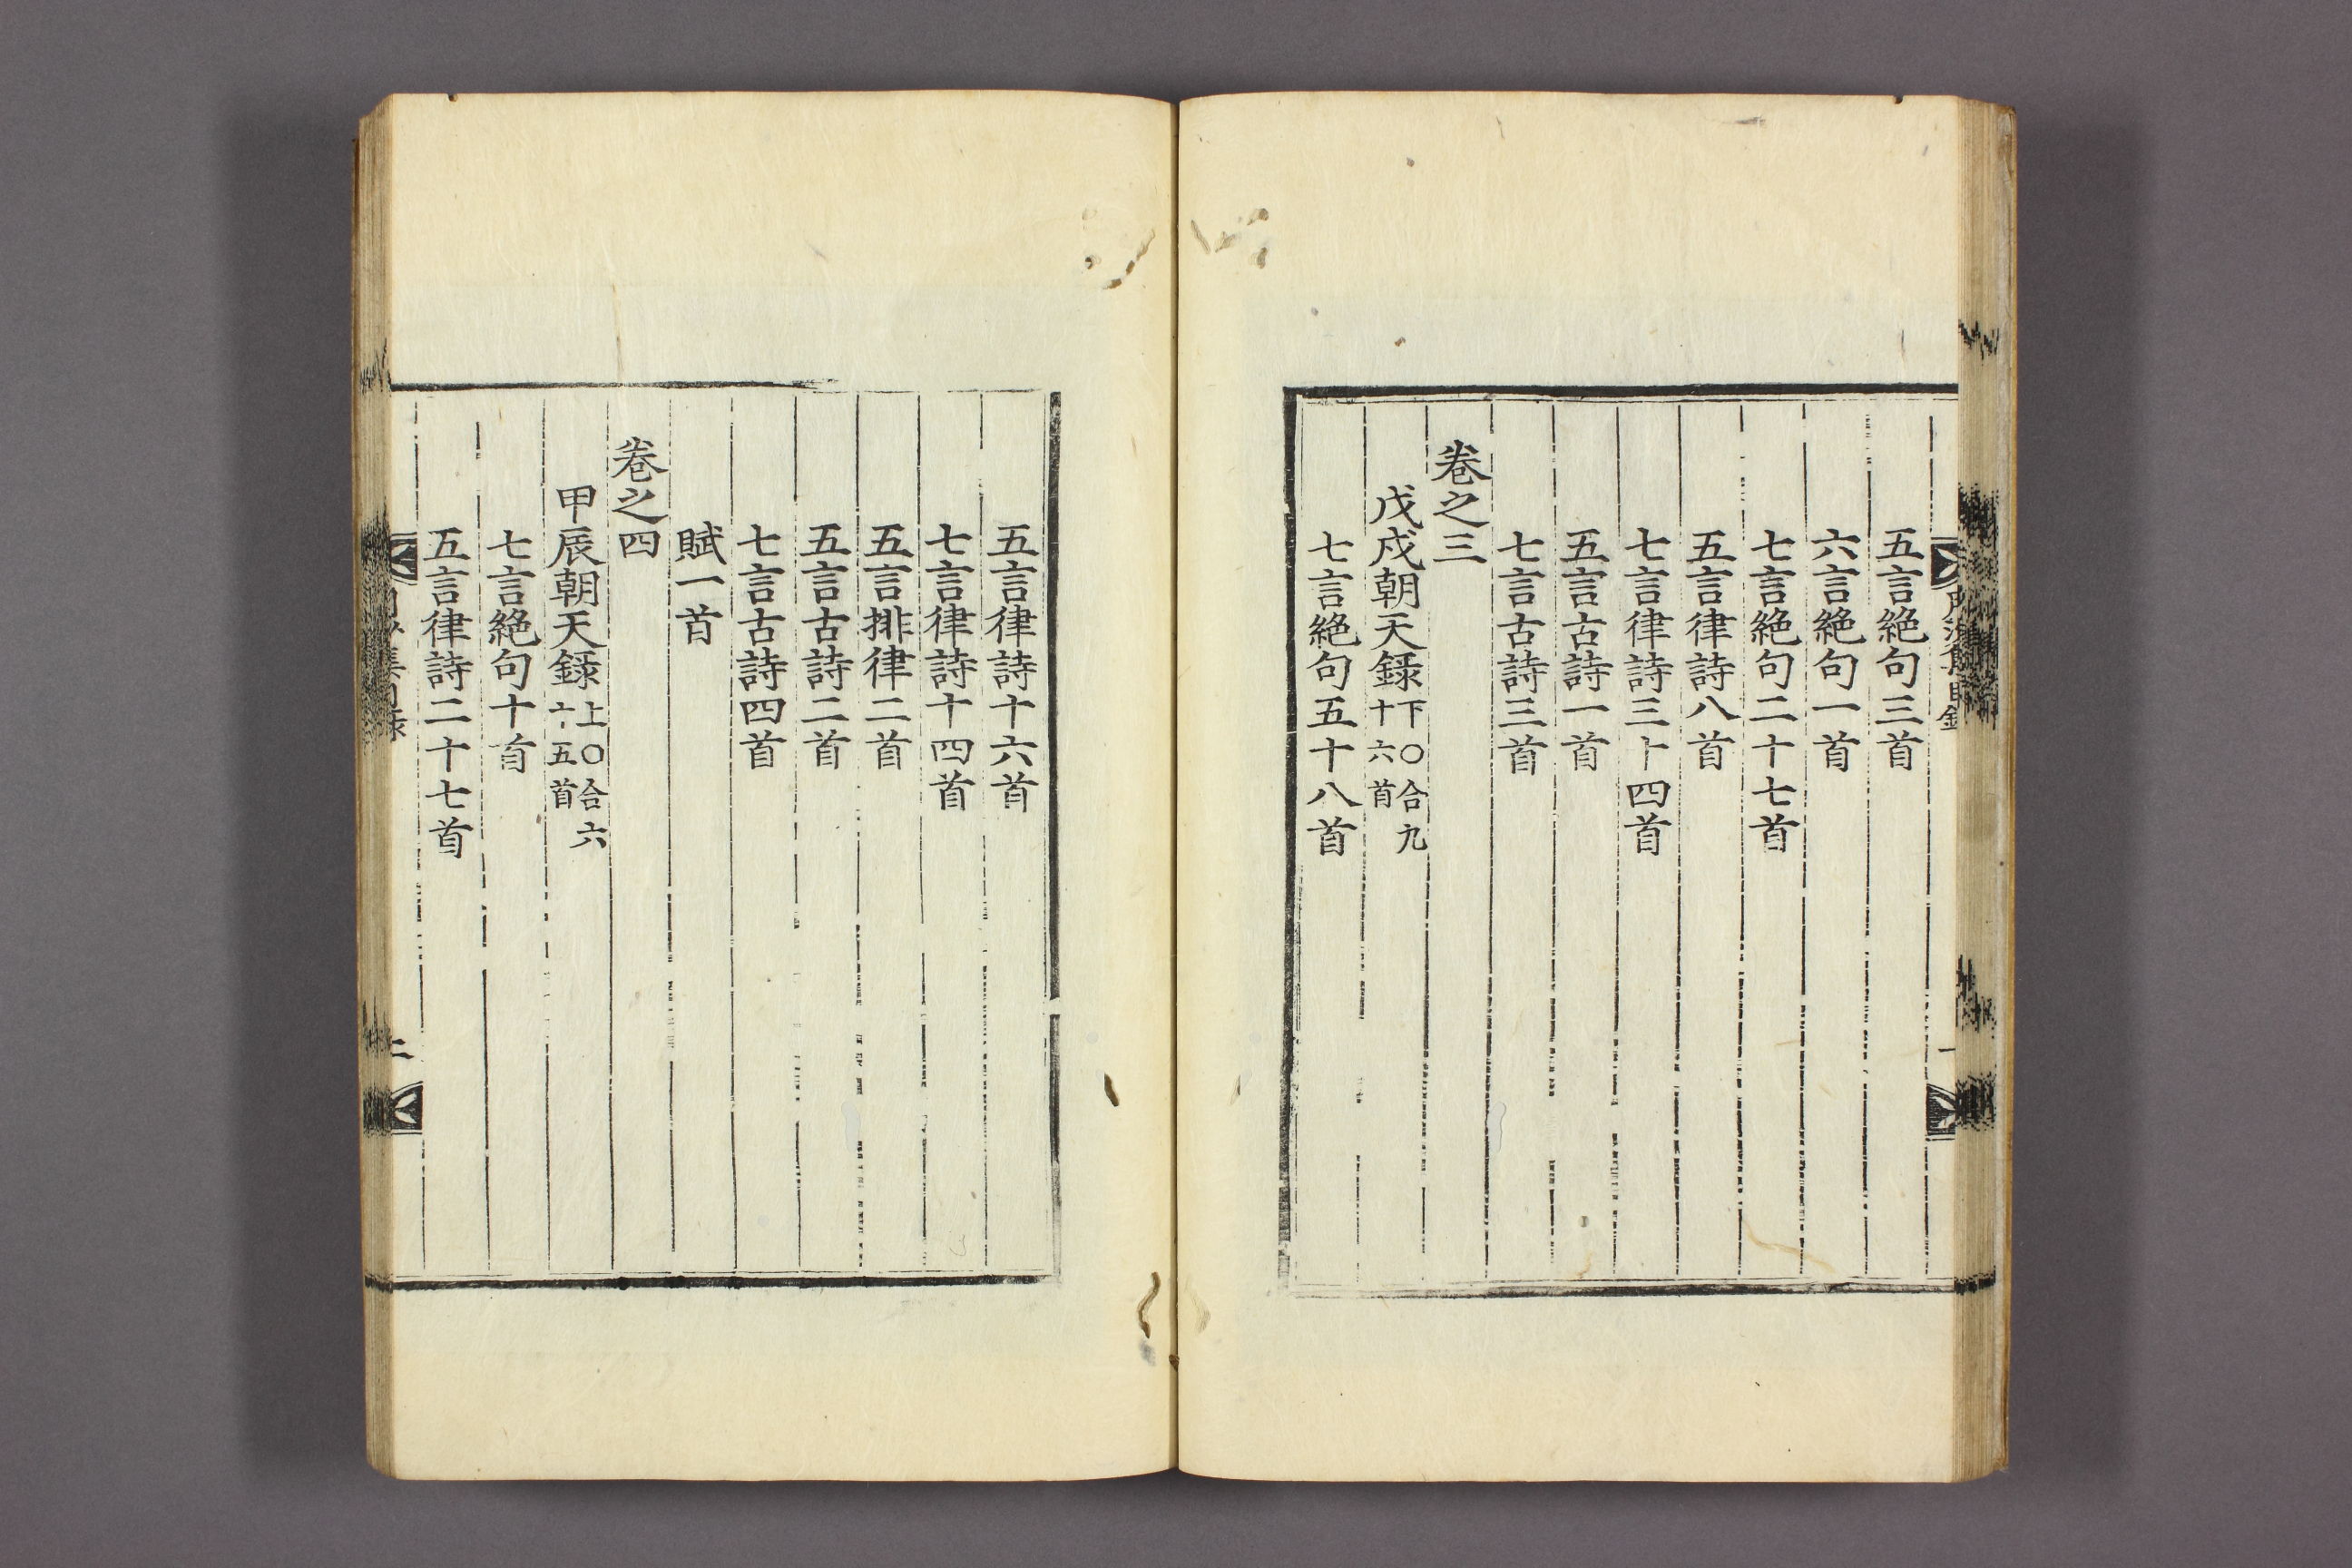 五言絶句三首
六言絶句一首
七言絶句二十七首
五言律詩八首
七言律詩三十四首
五言古詩一首
七言古詩三首
卷之三
戊戌朝天錄下○合九十六首
七言絶句五十八首
五言律詩十六首
七言律詩十四首
五言排律二首
五言古詩二首
七言古詩四首
賦一首
卷之四
甲辰朝天錄上○合六十五首
七言絶句十首
五言律詩二十七首
二